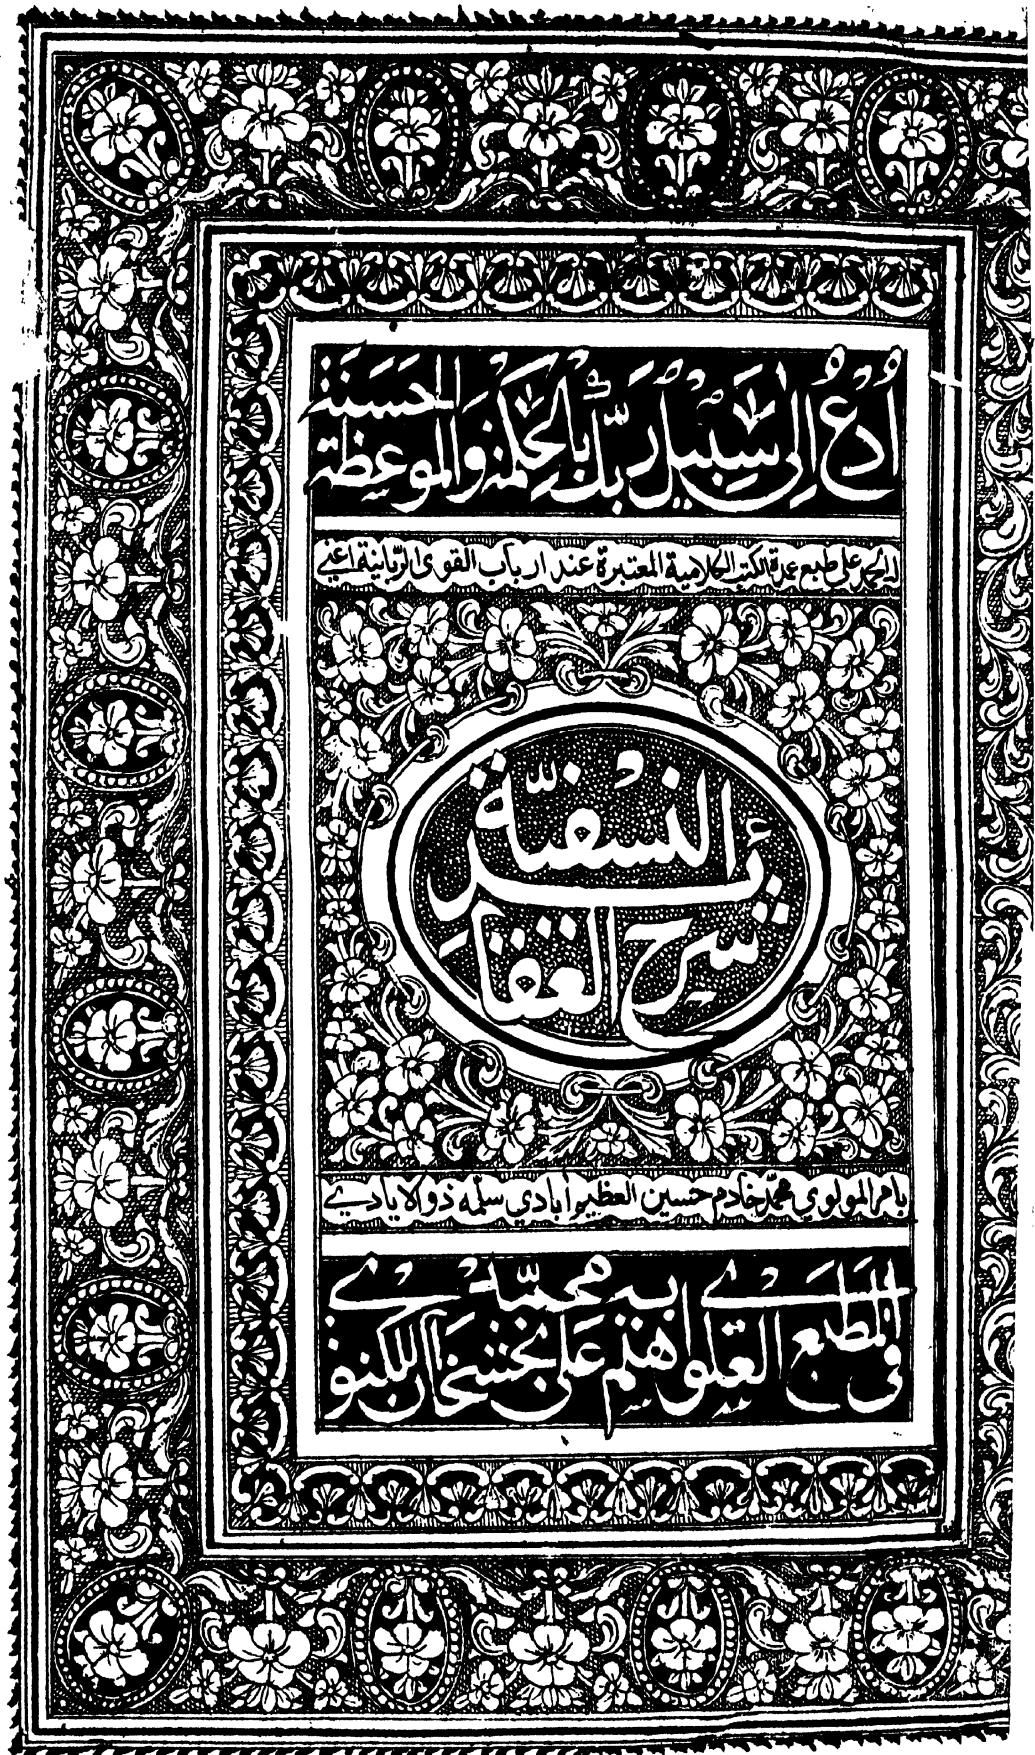 اُدْعُ اِلٰى سَبِيْلِ رَبِّكَ بِالْحِكْمَةِ وَالْمَوْعِظَةِ الْحَسَنَةِ
له الحمد على طبع عمدة الكتب الكلامية المعتبرة عند ارباب القوى الربّانية اعني
شرح العقائد النسفيّة
بامر المولوي محمّد خادم حسين العظيم أبادي سلّمه ذو الايادي
في المطبع العلوي علي بخش خان اللكنوي